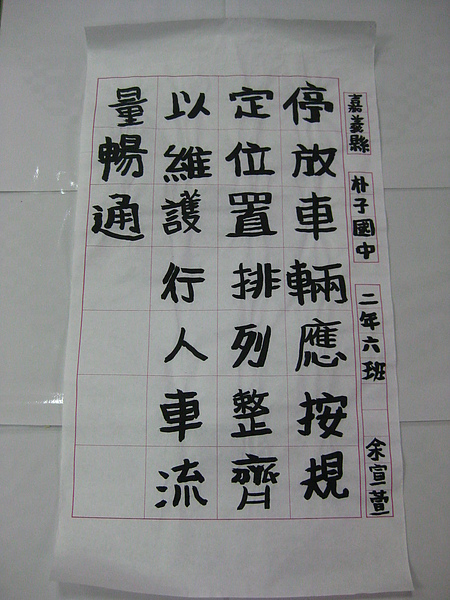 嘉義縣 朴子國中 二年六班 余宣萱
停放車輛應按規
定位置排列整齊
以維護行人車流
量暢通